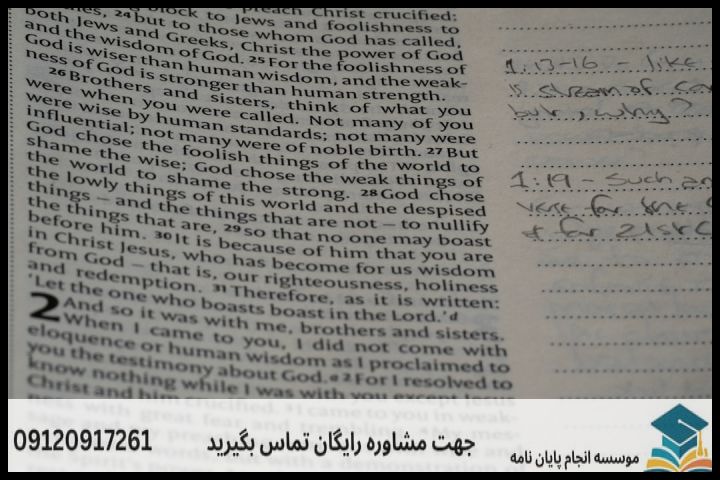 block to Jews and foolishness to
preach Christ crucified:
24 but to those whom God has called,
both Jews and Greeks, Christ the power of God
and the wisdom of God. 25 For the foolishness of
God is wiser than human wisdom, and the weak-
ness of God is stronger than human strength.
26 Brothers and sisters, think of what you
were when you were called. Not many of you
were wise by human standards; not many were
influential; not many were of noble birth. 27 But
God chose the foolish things of the world to
shame the wise; God chose the weak things of
the world to shame the strong. 28 God chose
the lowly things of this world and the despised
things – and the things that are not – to nullify
the things that are, 29 so that no one may boast
before him. 30 It is because of him that you are
in Christ Jesus, who has become for us wisdom
from God – that is, our righteousness, holiness
and redemption. 31 Therefore, as it is written:
'Let the one who boasts boast in the Lord.' d
2 And so it was with me, brothers and sisters.
When I came to you, I did not come with
eloquence or human wisdom as I proclaimed to
you the testimony about God. a 2 For I resolved to
know nothing while I was with you except Jesus
Christ and him crucified. 3 I came to you in weak-
ness with great fear and trembling. 4 My mes-
sage and my
1:13-16 - like
is stream of
but, why?
1:19 - such an
verse for the
& for 21st C
جهت مشاوره رایگان تماس بگیرید 09120917261
موسسه انجام پایان نامه